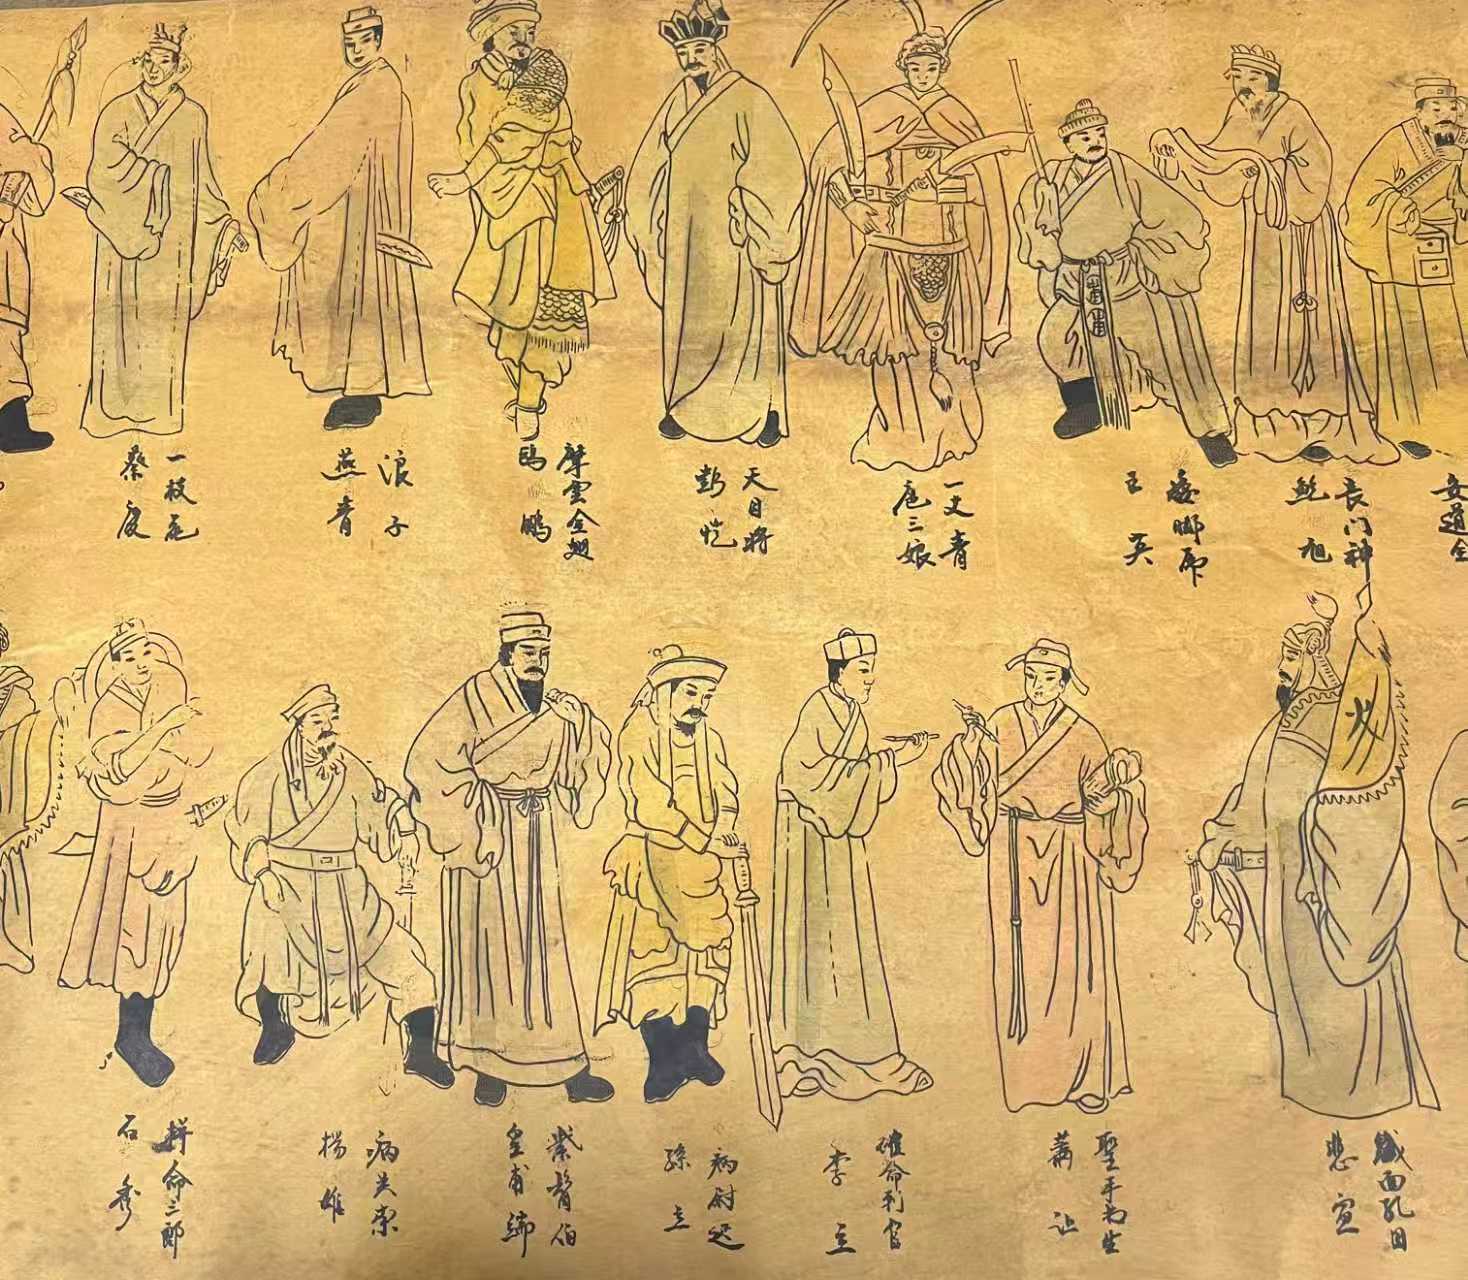 安道全
丧门神
鮑旭
矮脚虎
王英
一丈青
扈三娘
天目将
彭
摩雲金翅
鵬
浪子
燕青
一枝花
蔡庆
火
鐵面孔目
裴宣
聖手书生
萧让
催命判官
李立
病尉迟
孫立
紫髯伯
皇甫端
病关索
楊雄
拼命三郎
石秀